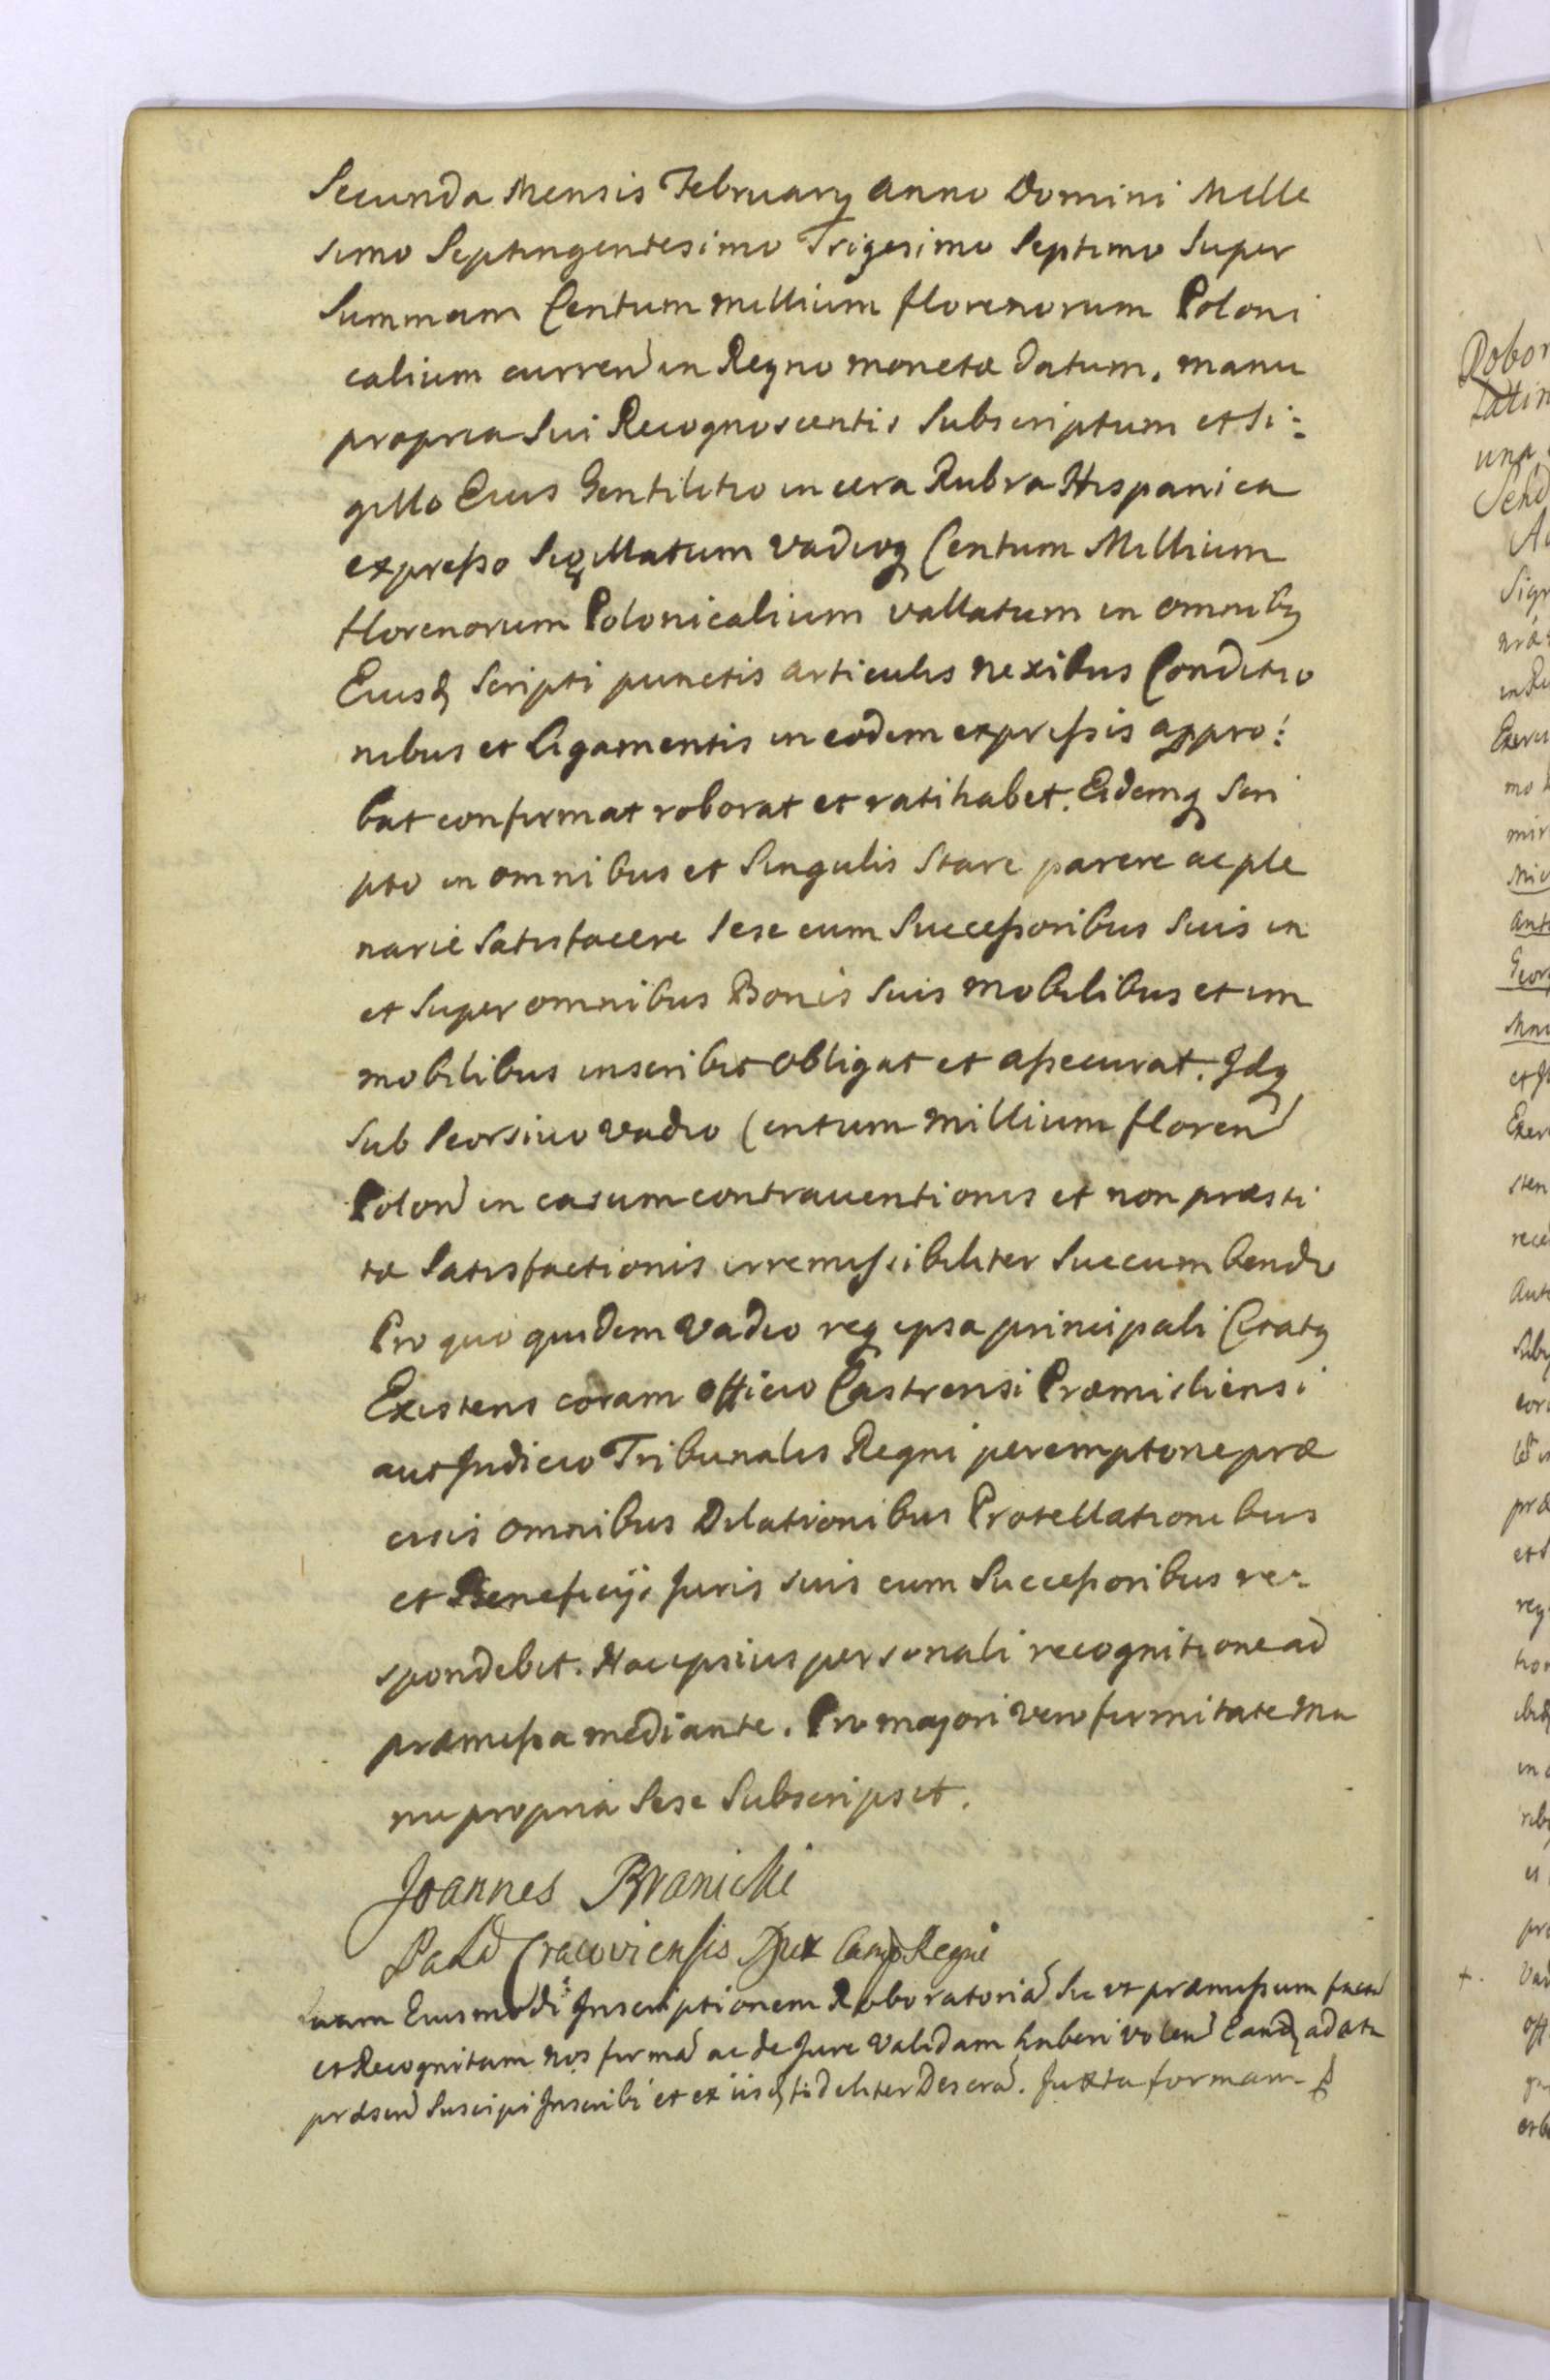 Secunda Mensis February anno Domini Mille
simo Septingentesimo Trigesimo Septimo Super
Summam Centum millium florenorum Poloni
calium curren in Regno monetæ datum. manu
propria Sui Recognoscentis Subscriptum et Si:
gillo Eius Gentilitio in cera Rubra Hispanica
expresso Sigillatum vadioq Centum Millium
florenorum Polonicalium vallatum in omnibq
Eiusd Scripti punctis articulis nexibus Conditio
nibus et Ligamentis in eodem expressis appro:
bat confirmat roborat et ratihabet. Eidemq Scri
pto in omnibus et Singulis Stare parere ac ple
narie Satisfacere Sese cum Successoribus Suis in
et Super omnibus Bonis Suis mobilibus et im
mobilibus inscribit obligat et assecurat. Idq
Sub Seorsivo vadio Centum millium floren
Polon in casum contraventionis et non præsti
tæ Satisfactionis irremissibiliter Succumbendo
Pro quo quidem vadio req ipsa principali Citatq
Existens coram officio Castrensi Præmisliensi
aut Judicio Tribunalis Regni peremptorie præ
cisis omnibus Dilationibus Protellationibus
et Beneficijs Juris Suis cum Successoribus re:
spondebit. Hac ipsius personali recognitione ad
præmissa mediante. Pro majori vero firmitate Ma
nu propria Sese Subscripsit.
Joannes Branicki
Pald Cracoviensis Dux Camp Regni
Quam Eiusmodi Inscriptionem Roboratoria Sic ut præmissum facta
et Recognitam nos firma ac de Jure validam haberi volen Eand ad acta
præsen Suscipi Inscribi et ex iisd fideliter Descrã. Juxta formam
Robor
Latin
una
Sign
Exer
mo
mir
Geor
Exer
sten
præ
et
req
in
pro
Vad
off